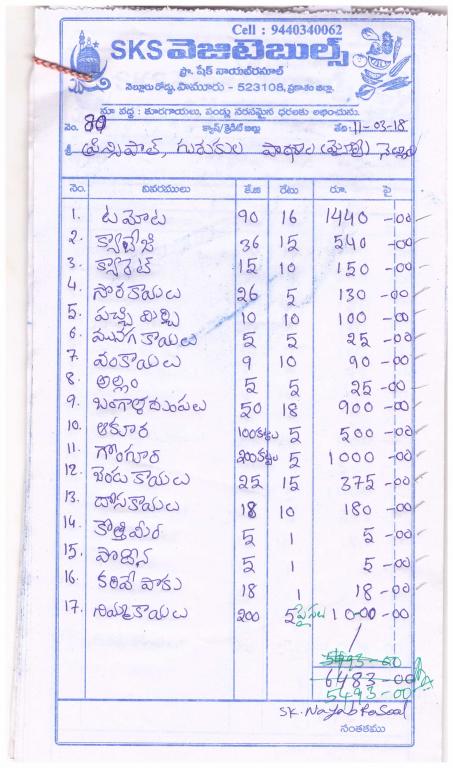 Cell : 9440340062
SKS వెజిటెబుల్స్
ప్రొ. షేక్ నాయబ్‌రసూల్
నెల్లూరు రోడ్డు, పామూరు - 523108, ప్రకాశం జిల్లా.
మా వద్ద : కూరగాయలు, పండ్లు సరసమైన ధరలకు లభించును.
నెం. 80 క్యాష్/క్రెడిట్ బిల్లు తేది : 11-03-18
శ్రీ ప్రిన్సిపాల్, గురుకుల పాఠశాల
నెం. వివరములు కే.జి రేటు రూ. పై
1. టమోట 90 16 1440 -00
2. క్యాబేజి 36 15 540 -00
3. క్యారెట్ 15 10 150 -00
4. సొరకాయలు 26 5 130 -00
5. పచ్చి మిర్చి 10 10 100 -00
6. మునగకాయలు 5 5 25 -00
7. వంకాయలు 9 10 90 -00
8. అల్లం 5 5 25 -00
9. బంగాళ్ళదుంపలు 50 18 900 -00
10. ఆకూర 100కట్టలు 5 500 -00
11. గోంగూర 200కట్టలు 5 1000 -00
12. బెండుకాయలు 25 15 375 -00
13. దోసకాయలు 18 10 180 -00
14. కొత్తిమీర 5 1 5 -00
15. పొదీన 5 1 5 -00
16. కరివేపాకు 18 1 18 -00
17. నిమ్మకాయలు 200 5 పైసలు 1000 -00
5493-00
6483-00
5493-00
SK. Nayab Rasool
సంతకము